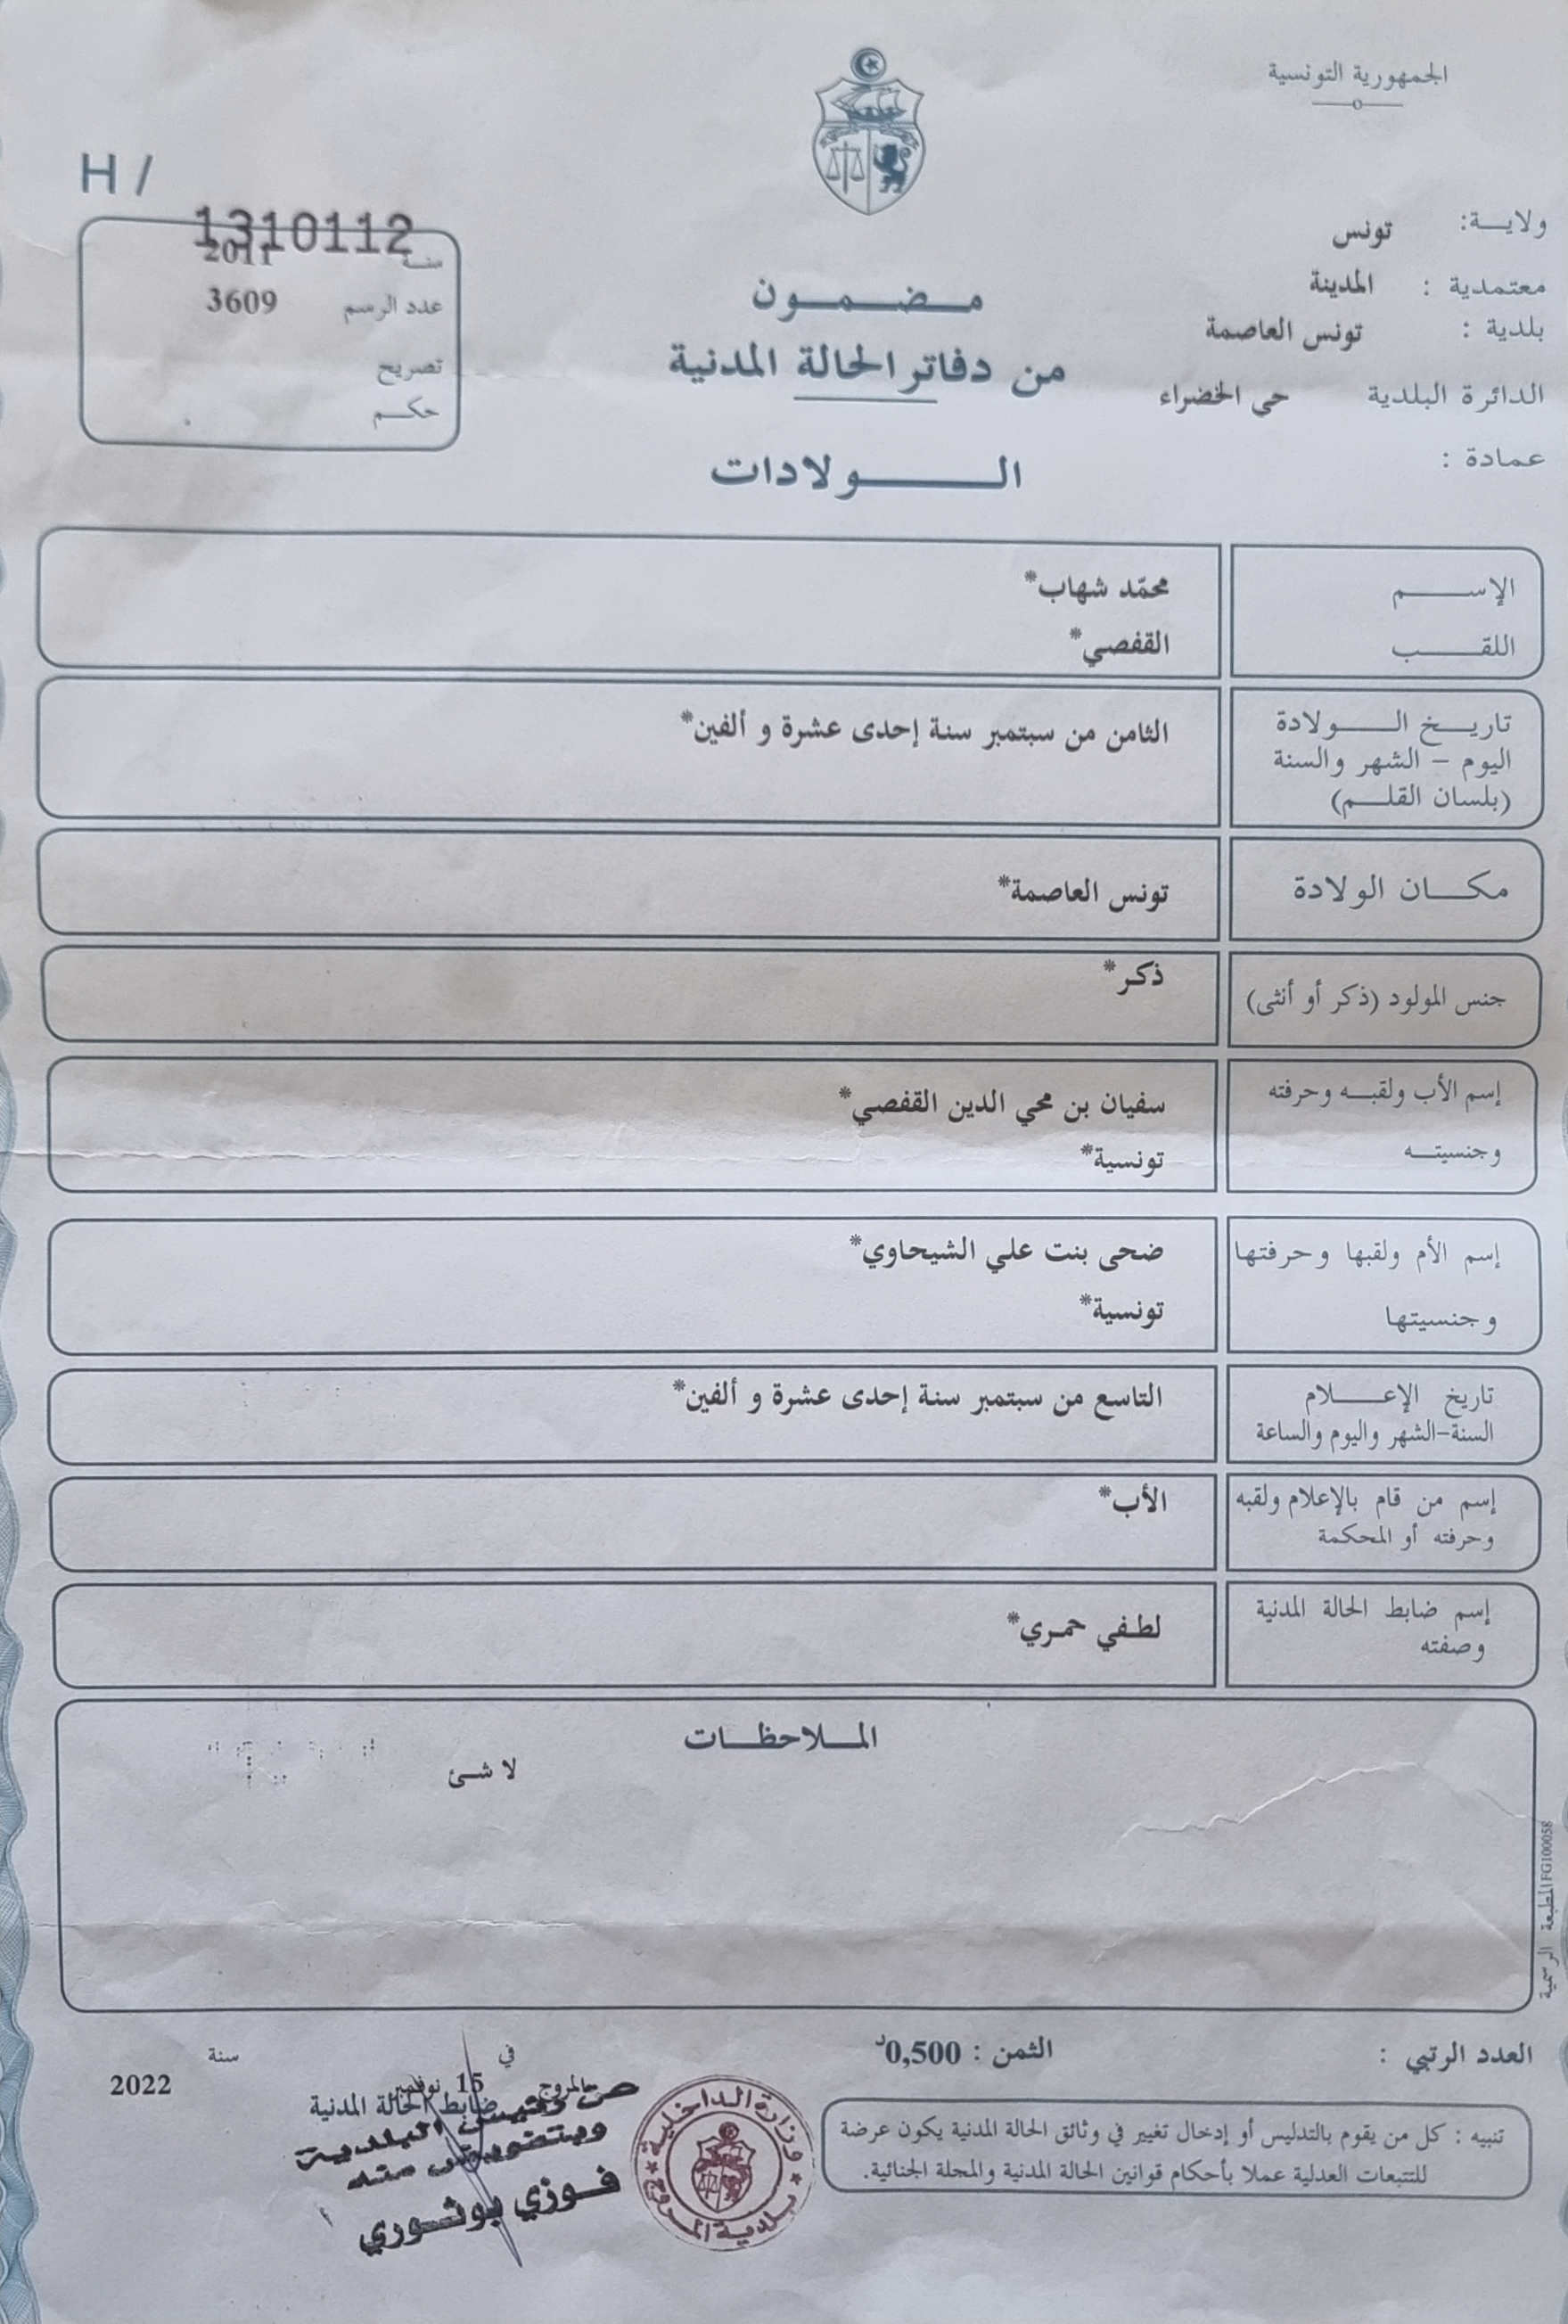 الجمهورية التونسية
H /
1310112
سنة 2011
عدد الرسم 3609
تصريح
حكم
ولاية: تونس
معتمدية : المدينة
بلدية : تونس العاصمة
الدائرة البلدية حي الخضراء
عمادة :
مضمون
من دفاتر الحالة المدنية
الولادات
الإسم محمّد شهاب*
اللقب القفصي*
تاريخ الولادة الثامن من سبتمبر سنة إحدى عشرة و ألفين*
اليوم - الشهر والسنة
(بلسان القلم)
مكان الولادة تونس العاصمة*
جنس المولود (ذكر أو أنثى) ذكر*
إسم الأب ولقبه وحرفته سفيان بن محي الدين القفصي*
وجنسيته تونسية*
إسم الأم ولقبها وحرفتها ضحى بنت علي الشيحاوي*
وجنسيتها تونسية*
تاريخ الإعلام التاسع من سبتمبر سنة إحدى عشرة و ألفين*
السنة-الشهر واليوم والساعة
إسم من قام بالإعلام ولقبه الأب*
وحرفته أو المحكمة
إسم ضابط الحالة المدنية لطفي حمري*
وصفته
الملاحظات
لا شئ
المطبعة الرسمية FG100058
العدد الرتبي :
الثمن : 0,500د
في سنة
المروج 15 نوفمبر 2022
ضابط الحالة المدنية
عن رئيس البلدية
وبتفويض منه
فوزي بوثوري
وزارة الداخلية
بلدية المروج
تنبيه : كل من يقوم بالتدليس أو إدخال تغيير في وثائق الحالة المدنية يكون عرضة
للتتبعات العدلية عملا بأحكام قوانين الحالة المدنية والمجلة الجنائية.